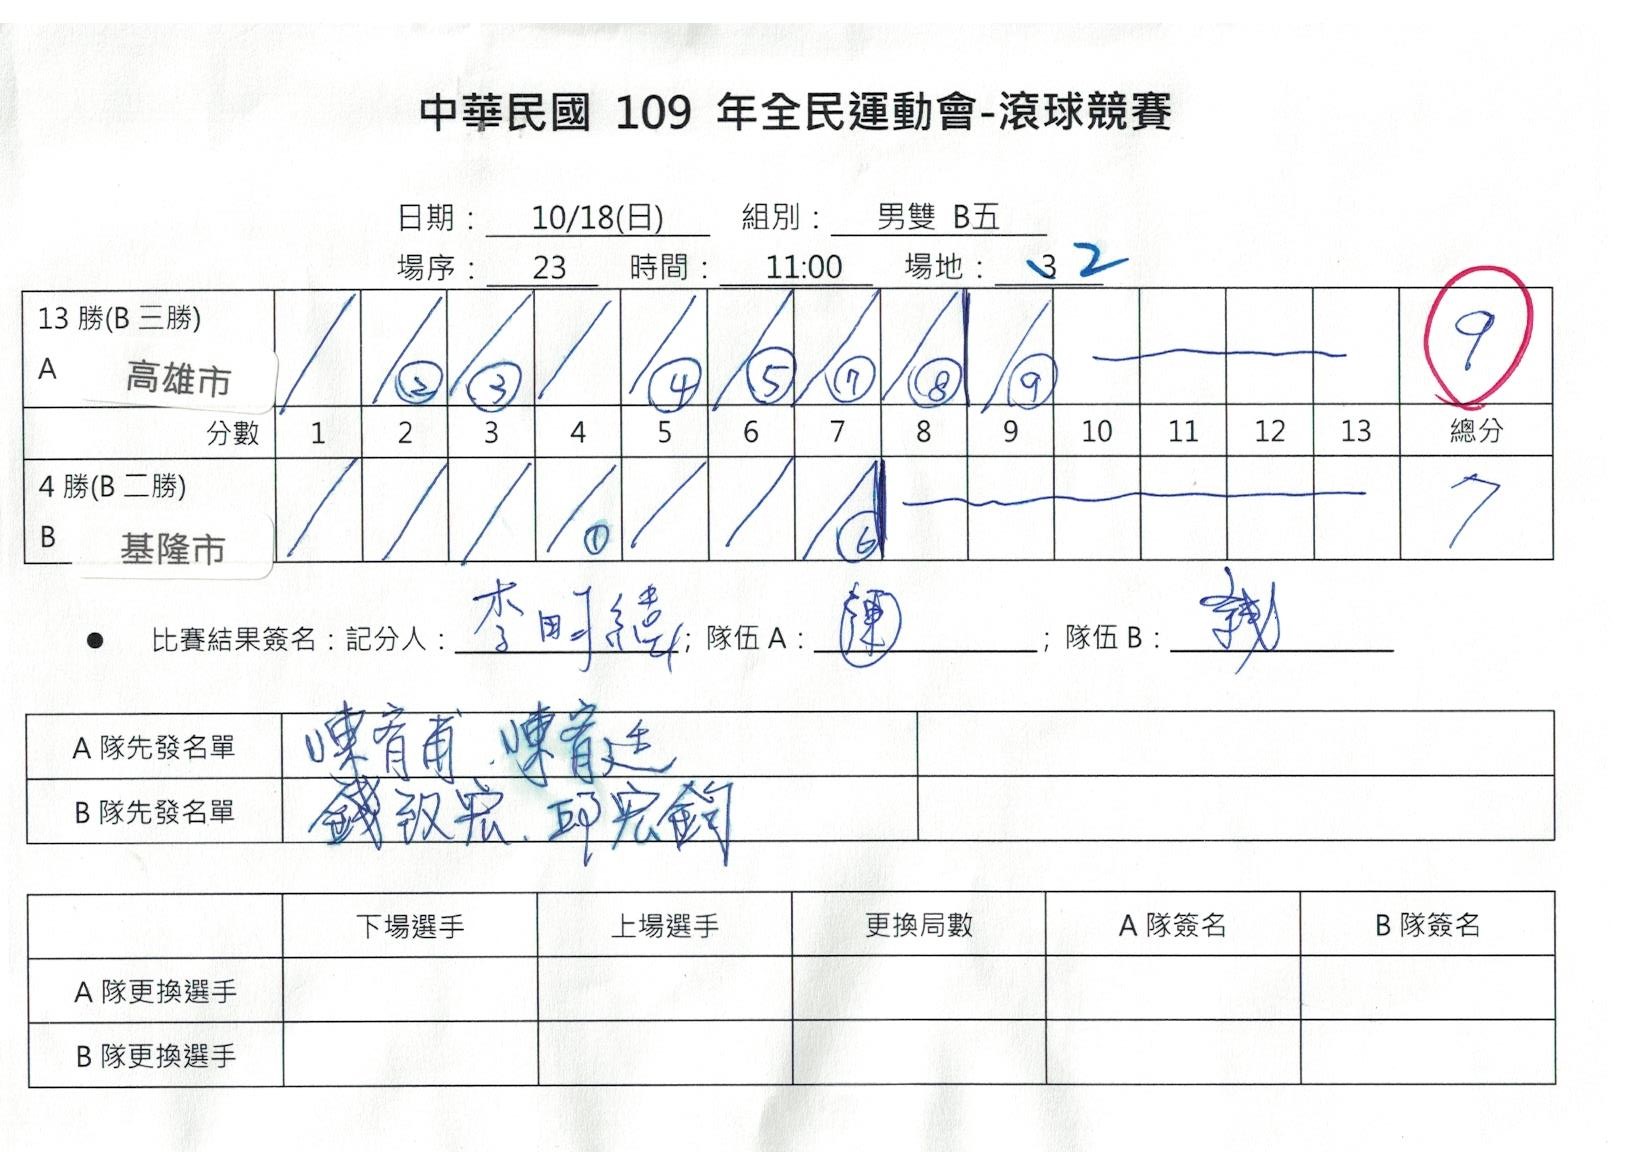 中華民國 109 年全民運動會-滾球競賽
日期： 10/18(日) 組別： 男雙 B五
場序： 23 時間： 11:00 場地： 3 2
13 勝(B 三勝)
A 高雄市 ② ③ ④ ⑤ ⑦ ⑧ ⑨ 9
分數 1 2 3 4 5 6 7 8 9 10 11 12 13 總分
4 勝(B 二勝)
B 基隆市 ① ⑥ 7
● 比賽結果簽名：記分人： 李明 ; 隊伍 A： 陳 ; 隊伍 B： 錢
A 隊先發名單 陳宥甫、陳宥廷
B 隊先發名單 錢 宏、邱宏鈞
下場選手 上場選手 更換局數 A 隊簽名 B 隊簽名
A 隊更換選手
B 隊更換選手